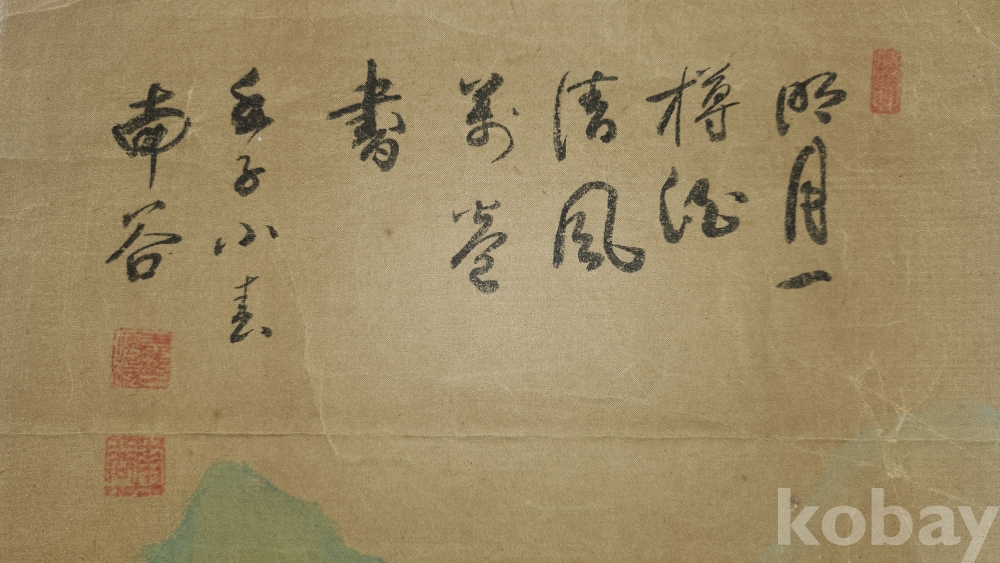 明月一
樽酒
清風
萬卷
書
壬子小春
南谷
kobay